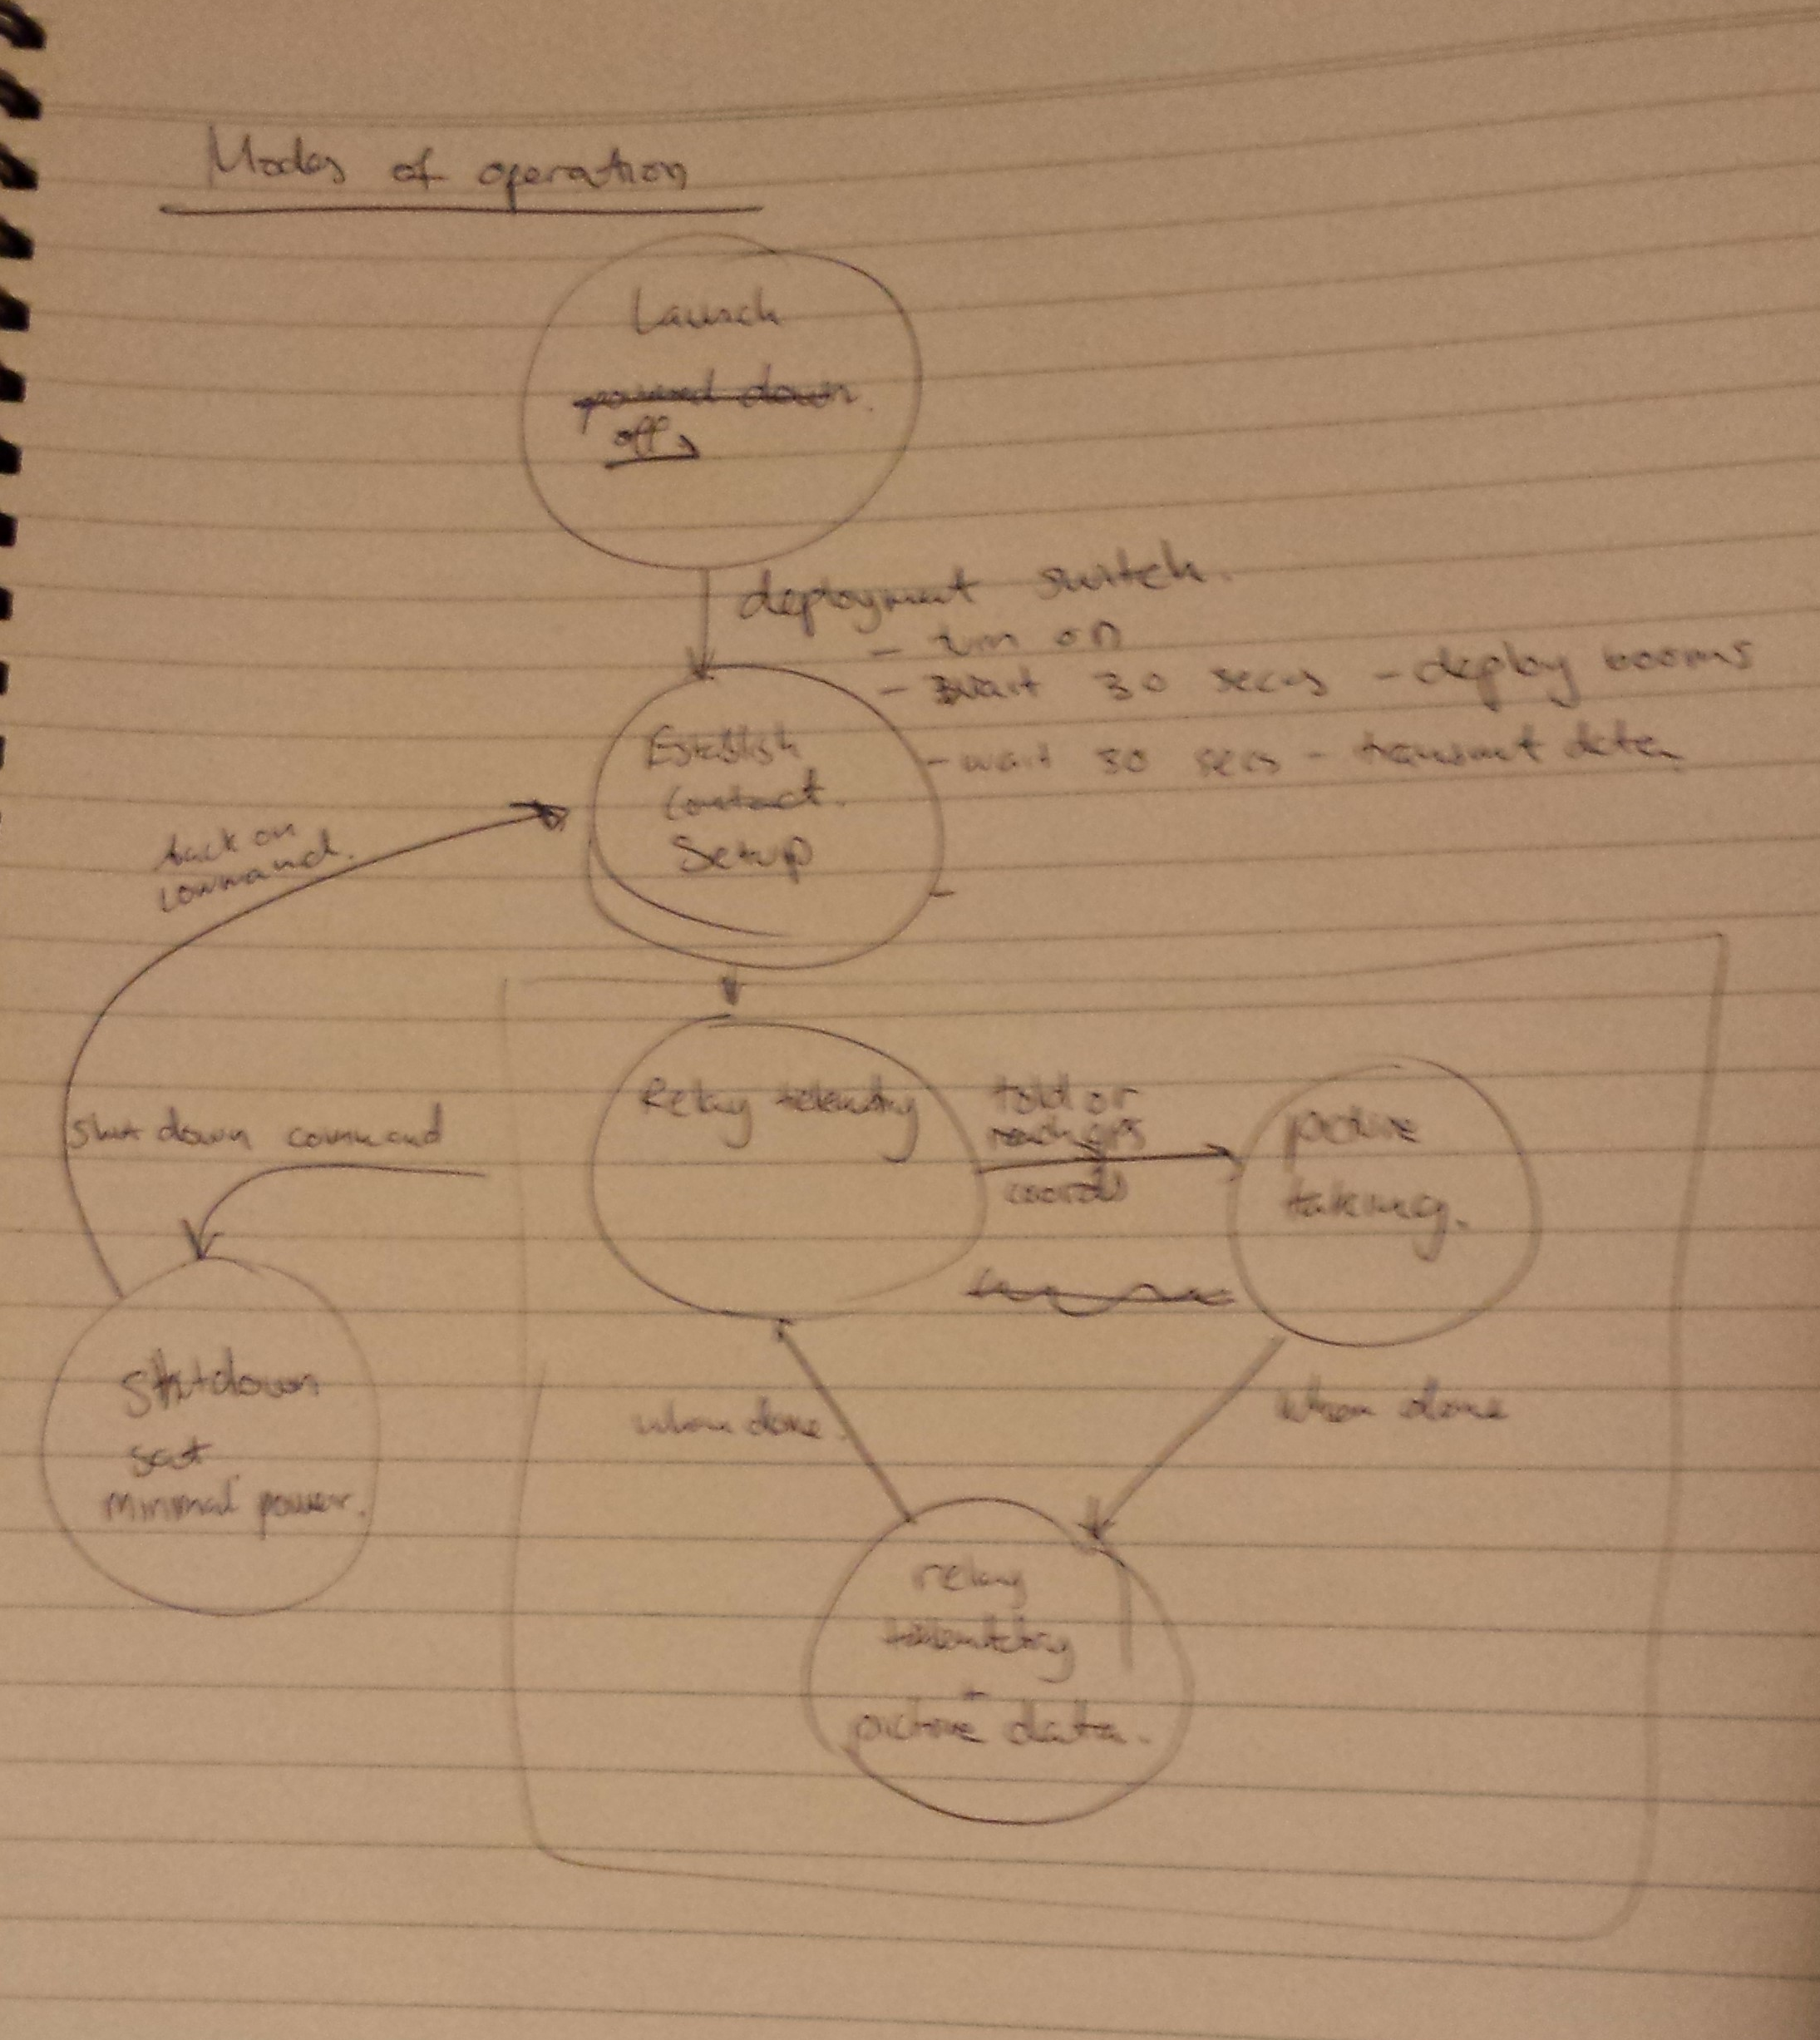 Modes of operation
Launch
powered down.
off
deployment switch.
- turn on
- wait 30 secs - deploy booms
Establish
contact.
Setup
- wait 30 secs - transmit data
back on
command.
Relay telemetry
told or
reach gps
coords
picture
taking.
Shut down command
Shutdown
sat
minimal power.
when done.
when done
relay
telemetry
+
picture data.